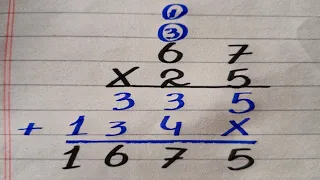 1
3
67
x25
335
+134x
1675